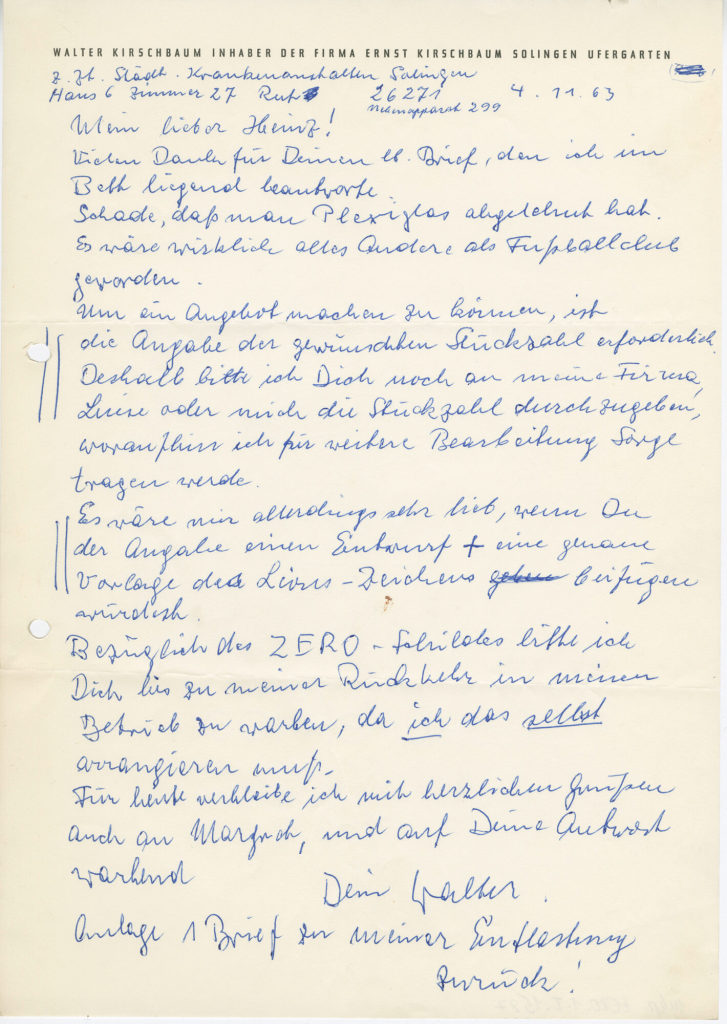 WALTER KIRSCHBAUM INHABER DER FIRMA ERNST KIRSCHBAUM SOLINGEN UFERGARTEN
z. Zt. Städt. Krankenanstalten Solingen
Haus 6 Zimmer 27 Ruf 26271 4.11.63
Nebenapparat 299
Mein lieber Heinz!
Vielen Dank für Deinen lb. Brief, den ich im
Bett liegend beantworte.
Schade, daß man Plexiglas abgelehnt hat.
Es wäre wirklich alles Andere als Fußballclub
geworden.
Um ein Angebot machen zu können, ist
die Angabe der gewünschten Stückzahl erforderlich.
Deshalb bitte ich Dich noch an meine Firma,
Luise oder mich die Stückzahl durchzugeben,
woraufhin ich für weitere Bearbeitung Sorge
tragen werde.
Es wäre mir allerdings sehr lieb, wenn Du
der Angabe einen Entwurf + eine genaue
Vorlage des Lions-Zeichens geben beifügen
würdest.
Bezüglich des ZERO-Schildes bitte ich
Dich bis zu meiner Rückkehr in meinen
Betrieb zu warten, da ich das selbst
arrangieren muß.
Für heute verbleibe ich mit herzlichen Grüßen
auch an Margret, und auf Deine Antwort
wartend
Dein Walter.
Anlage 1 Brief zu meiner Entlastung
zurück!